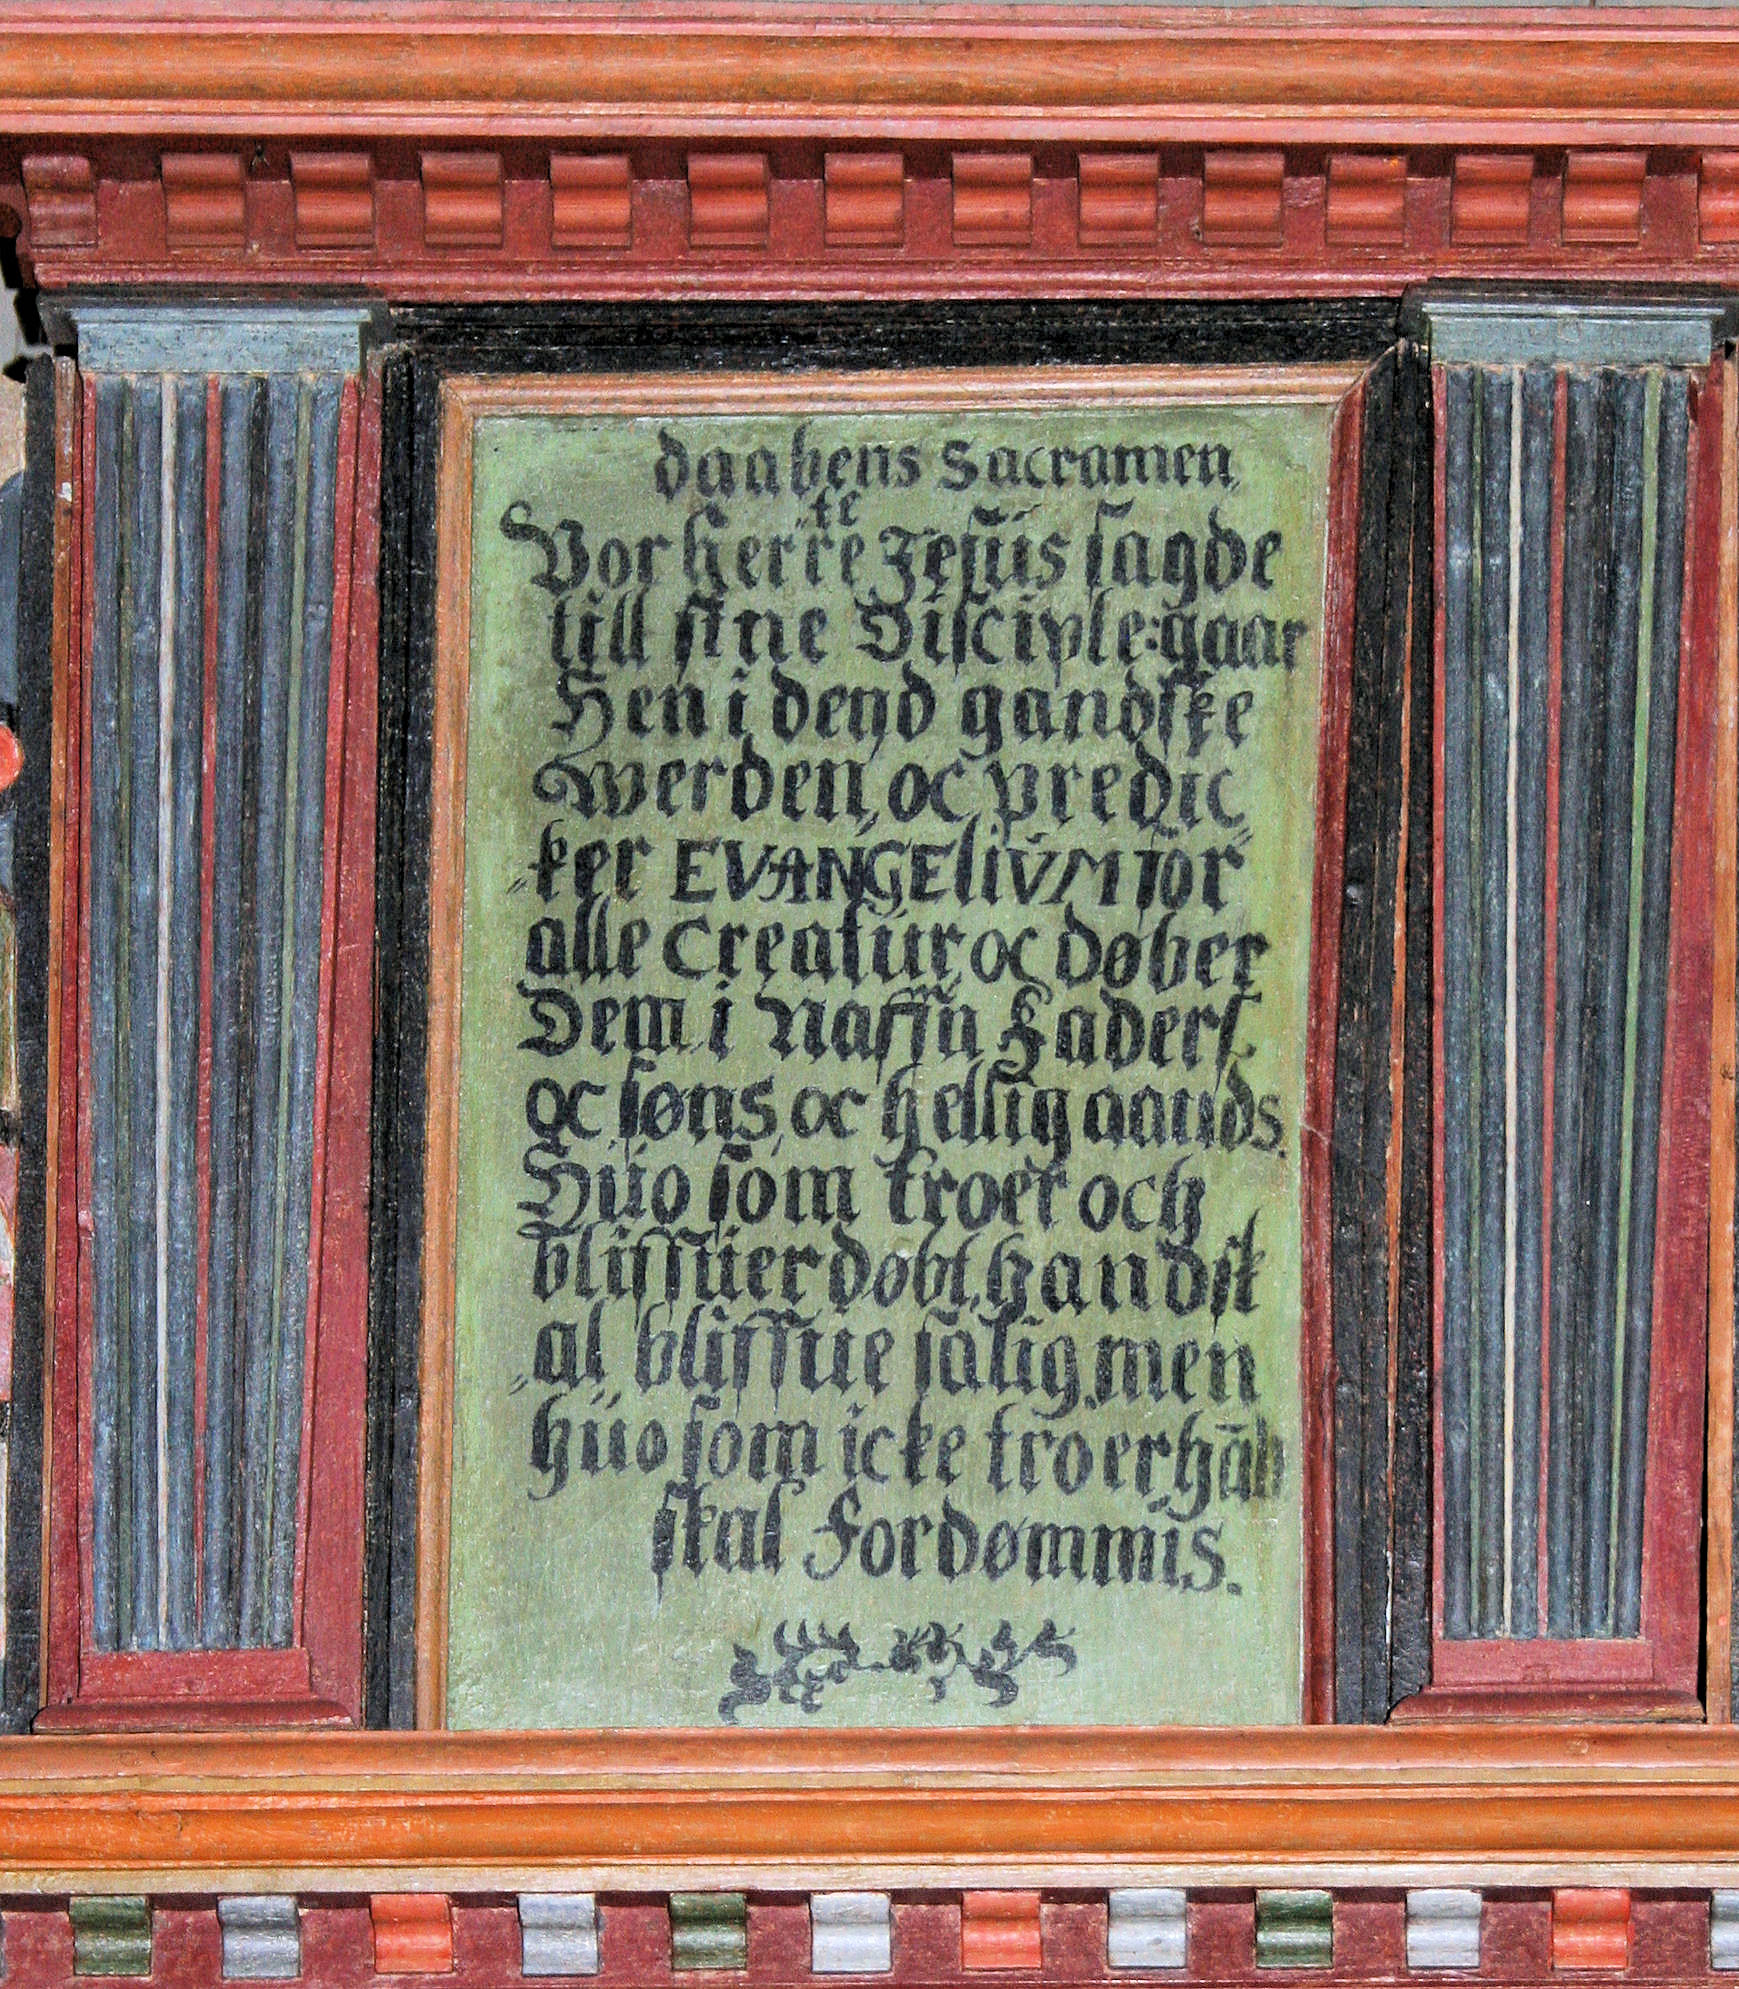 daabens Sacramen
te
Vor herre Jesus sagde
till sine Disciple: gaar
Hen i dend gandske
werden, oc predic
ker EVANGELIVM for
alle Creatur, oc døber
Dem i Naffn Faders
oc søns, oc hellig aands.
Hüo som troer och
bliffuer døbt, hand sk
al bliffue salig, men
hüo som icke troer hā
skal Fordømmis.